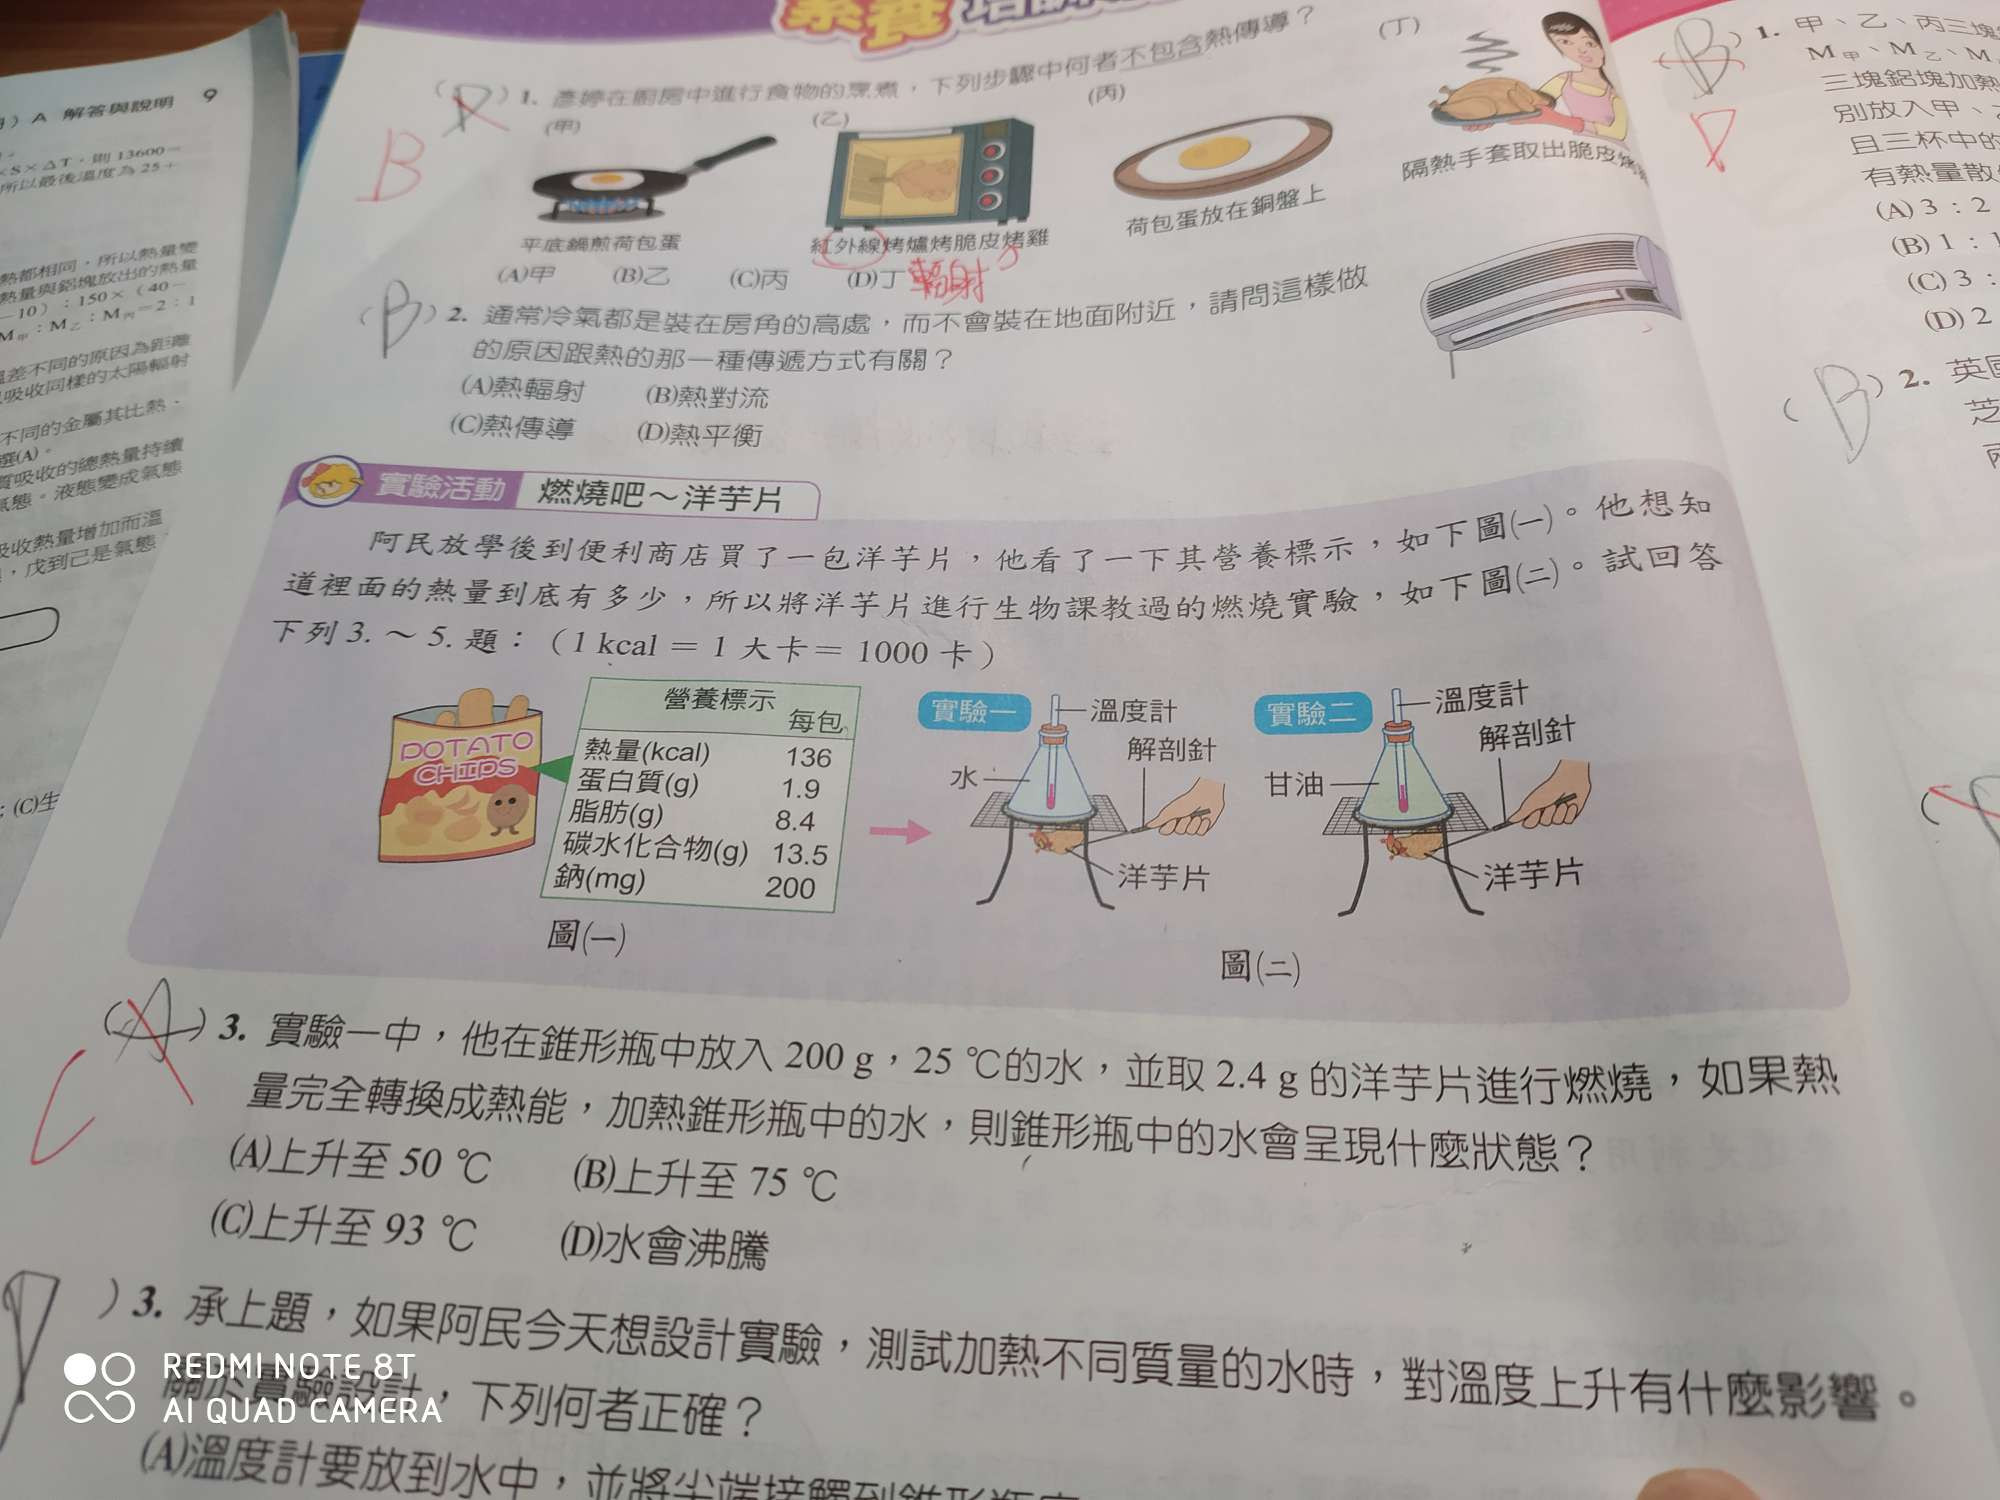 9
A 解答與說明
×S×ΔT，則 13600＝
所以最後溫度為 25＋
熱都相同，所以熱量變
熱量與鋁塊放出的熱量
—10）：150×（40－
M甲：M乙：M丙＝2：1
溫差不同的原因為距離
吸收同樣的太陽輻射
不同的金屬其比熱、
選(A)。
質吸收的總熱量持續
氣態。液態變成氣態
吸收熱量增加而溫
，戊到己是氣態
；(C)生
素養
(A) 1. 彥婷在廚房中進行食物的烹煮，下列步驟中何者不包含熱傳導？
B
(甲)
(乙)
(丙)
(丁)
平底鍋煎荷包蛋
紅外線烤爐烤脆皮烤雞
荷包蛋放在銅盤上
隔熱手套取出脆皮烤
(A)甲 (B)乙 (C)丙 (D)丁
輻射
(B) 2. 通常冷氣都是裝在房角的高處，而不會裝在地面附近，請問這樣做
的原因跟熱的那一種傳遞方式有關？
(A)熱輻射 (B)熱對流
(C)熱傳導 (D)熱平衡
實驗活動 燃燒吧～洋芋片
阿民放學後到便利商店買了一包洋芋片，他看了一下其營養標示，如下圖(一)。他想知
道裡面的熱量到底有多少，所以將洋芋片進行生物課教過的燃燒實驗，如下圖(二)。試回答
下列 3. ～ 5. 題：（1 kcal ＝ 1 大卡＝ 1000 卡）
POTATO
CHIPS
營養標示
每包
熱量(kcal) 136
蛋白質(g) 1.9
脂肪(g) 8.4
碳水化合物(g) 13.5
鈉(mg) 200
圖(一)
實驗一
溫度計
解剖針
水
洋芋片
實驗二
溫度計
解剖針
甘油
洋芋片
圖(二)
(A) 3. 實驗一中，他在錐形瓶中放入 200 g，25 ℃的水，並取 2.4 g 的洋芋片進行燃燒，如果熱
量完全轉換成熱能，加熱錐形瓶中的水，則錐形瓶中的水會呈現什麼狀態？
C
(A)上升至 50 ℃ (B)上升至 75 ℃
(C)上升至 93 ℃ (D)水會沸騰
) 3. 承上題，如果阿民今天想設計實驗，測試加熱不同質量的水時，對溫度上升有什麼影響。
關於實驗設計，下列何者正確？
(A)溫度計要放到水中，並將尖端接觸到錐形瓶底
(B) 1. 甲、乙、丙三塊
D
M甲、M乙、M
三塊鋁塊加熱
別放入甲、
且三杯中的
有熱量散
(A) 3：2
(B) 1：1
(C) 3：
(D) 2
(B) 2. 英國
芝
REDMI NOTE 8T
AI QUAD CAMERA